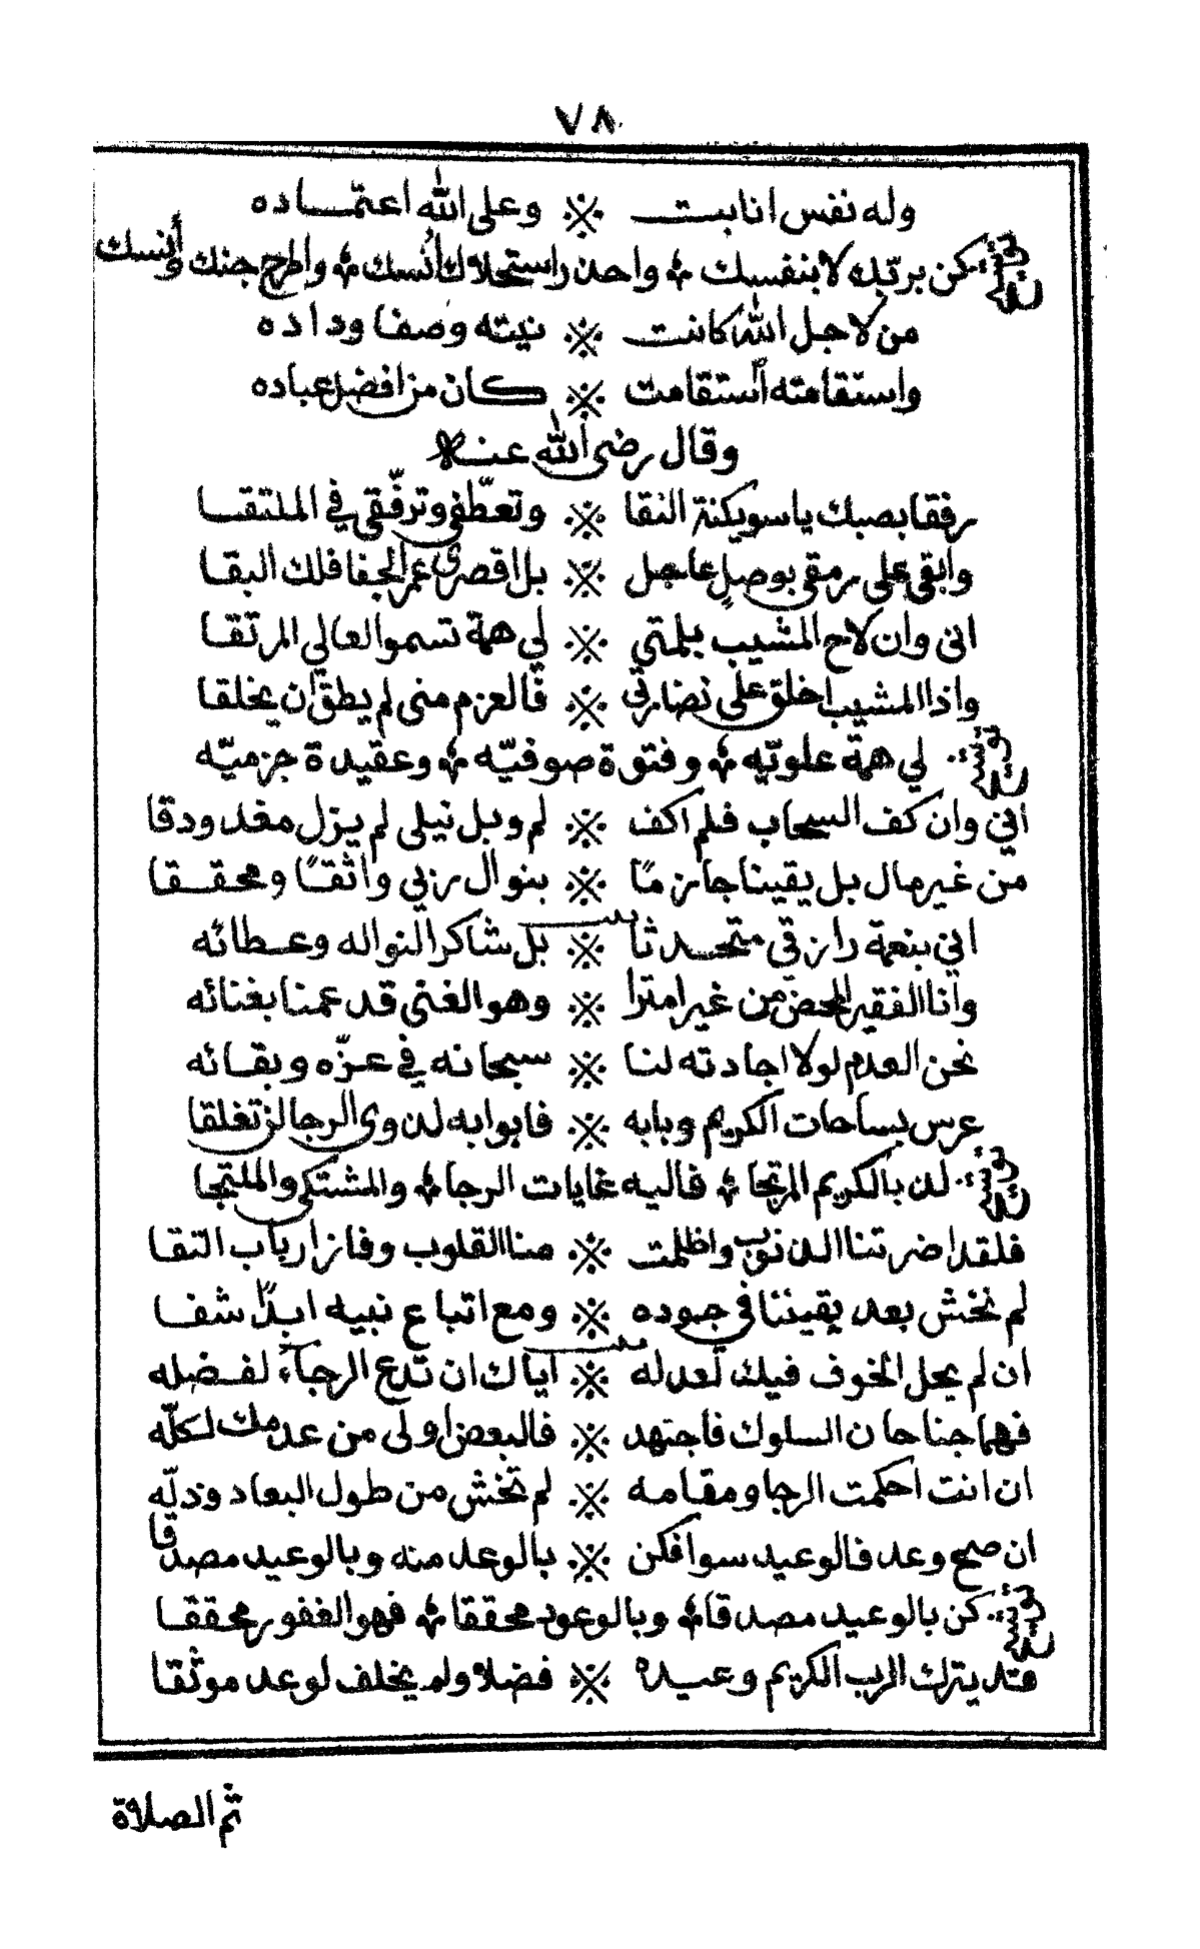 ٧٨
وله نفس انابت ※ وعلى الله اعتماده
توشيح كن بربّك لا بنفسك ۞ واحذر استحلاك أنسك ۞ واطرح جنك وأنسك
من لاجل الله كانت ※ نيته وصفا وداده
واستقامته استقامت ※ كان من افضل عباده
وقال رضي الله عنه
رفقا بصبك يا سويكنة النقا ※ وتعطّفي وترفّقي في الملتقا
وابقي على رمقي بوصلٍ عاجل ※ بل اقصري عمر الجفا فلك البقا
اني وان لاح المشيب بلمتي ※ لي همة تسمو العالي المرتقا
واذا المشيب اخلق على نضارتي ※ فالعزم مني لم يطق ان يخلقا
توشيح لي همة علويّه ۞ وفتوة صوفيّه ۞ وعقيدة جزميّه
اني وان كف السحاب فلم اكف ※ لم وبل نيلي لم يزل مغدودقا
من غير مال بل يقينا جازمًا ※ بنوال ربي واثقًا ومحققا
اني بنعمة رازقي متحدثا ※ بل شاكرا لنواله وعطائه
وانا الفقير المحض من غير امترا ※ وهو الغني قد عمنا بغنائه
نحن العدم لولا اجادته لنا ※ سبحانه في عزّه وبقائه
عرس بساحات الكريم وبابه ※ فابوابه لذوي الرجا لن تغلقا
توشيح لذ بالكريم المرتجا ۞ فاليه غايات الرجا ۞ والمشتكى والملتجا
فلقد اضرتنا الذنوب واظلمت ※ منا القلوب وفاز ارباب التقا
لم نخش بعد يقيننا في جوده ※ ومع اتباع نبيه ابدًا شفا
ان لم يحل الخوف فيك لعدله ※ اياك ان تدع الرجاء لفضله
فهما جناحان السلوك فاجتهد ※ فالبعض اولى من عدمك لكلّه
ان انت احكمت الرجا ومقامه ※ لم تخش من طول البعاد وذلّه
ان صح وعد فالوعيد سوا فكن ※ بالوعد منه وبالوعيد مصدقا
توشيح كن بالوعيد مصدقا ۞ وبالوعود محققا ۞ فهو الغفور محققا
قد يترك الرب الكريم وعيده ※ فضلا ولم يخلف لوعد موثقا
ثم الصلاة